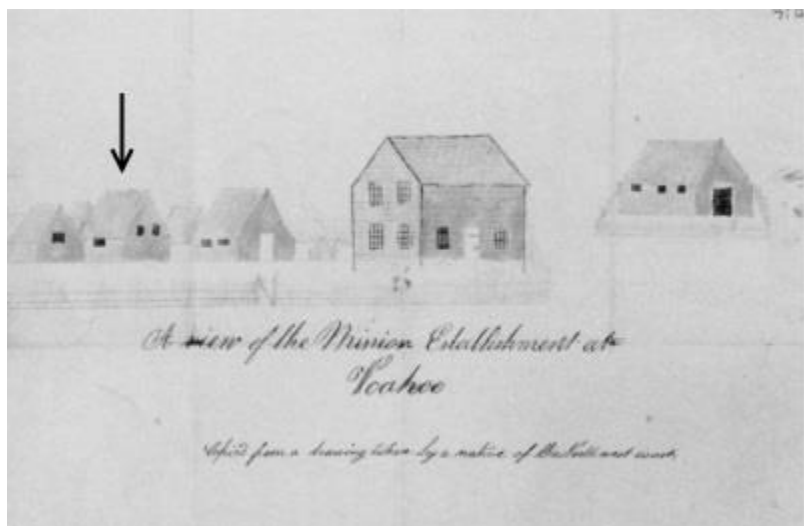 A view of the Minion Establishment at
Woahoo
Copied from a drawing taken by a native of the North west coast.